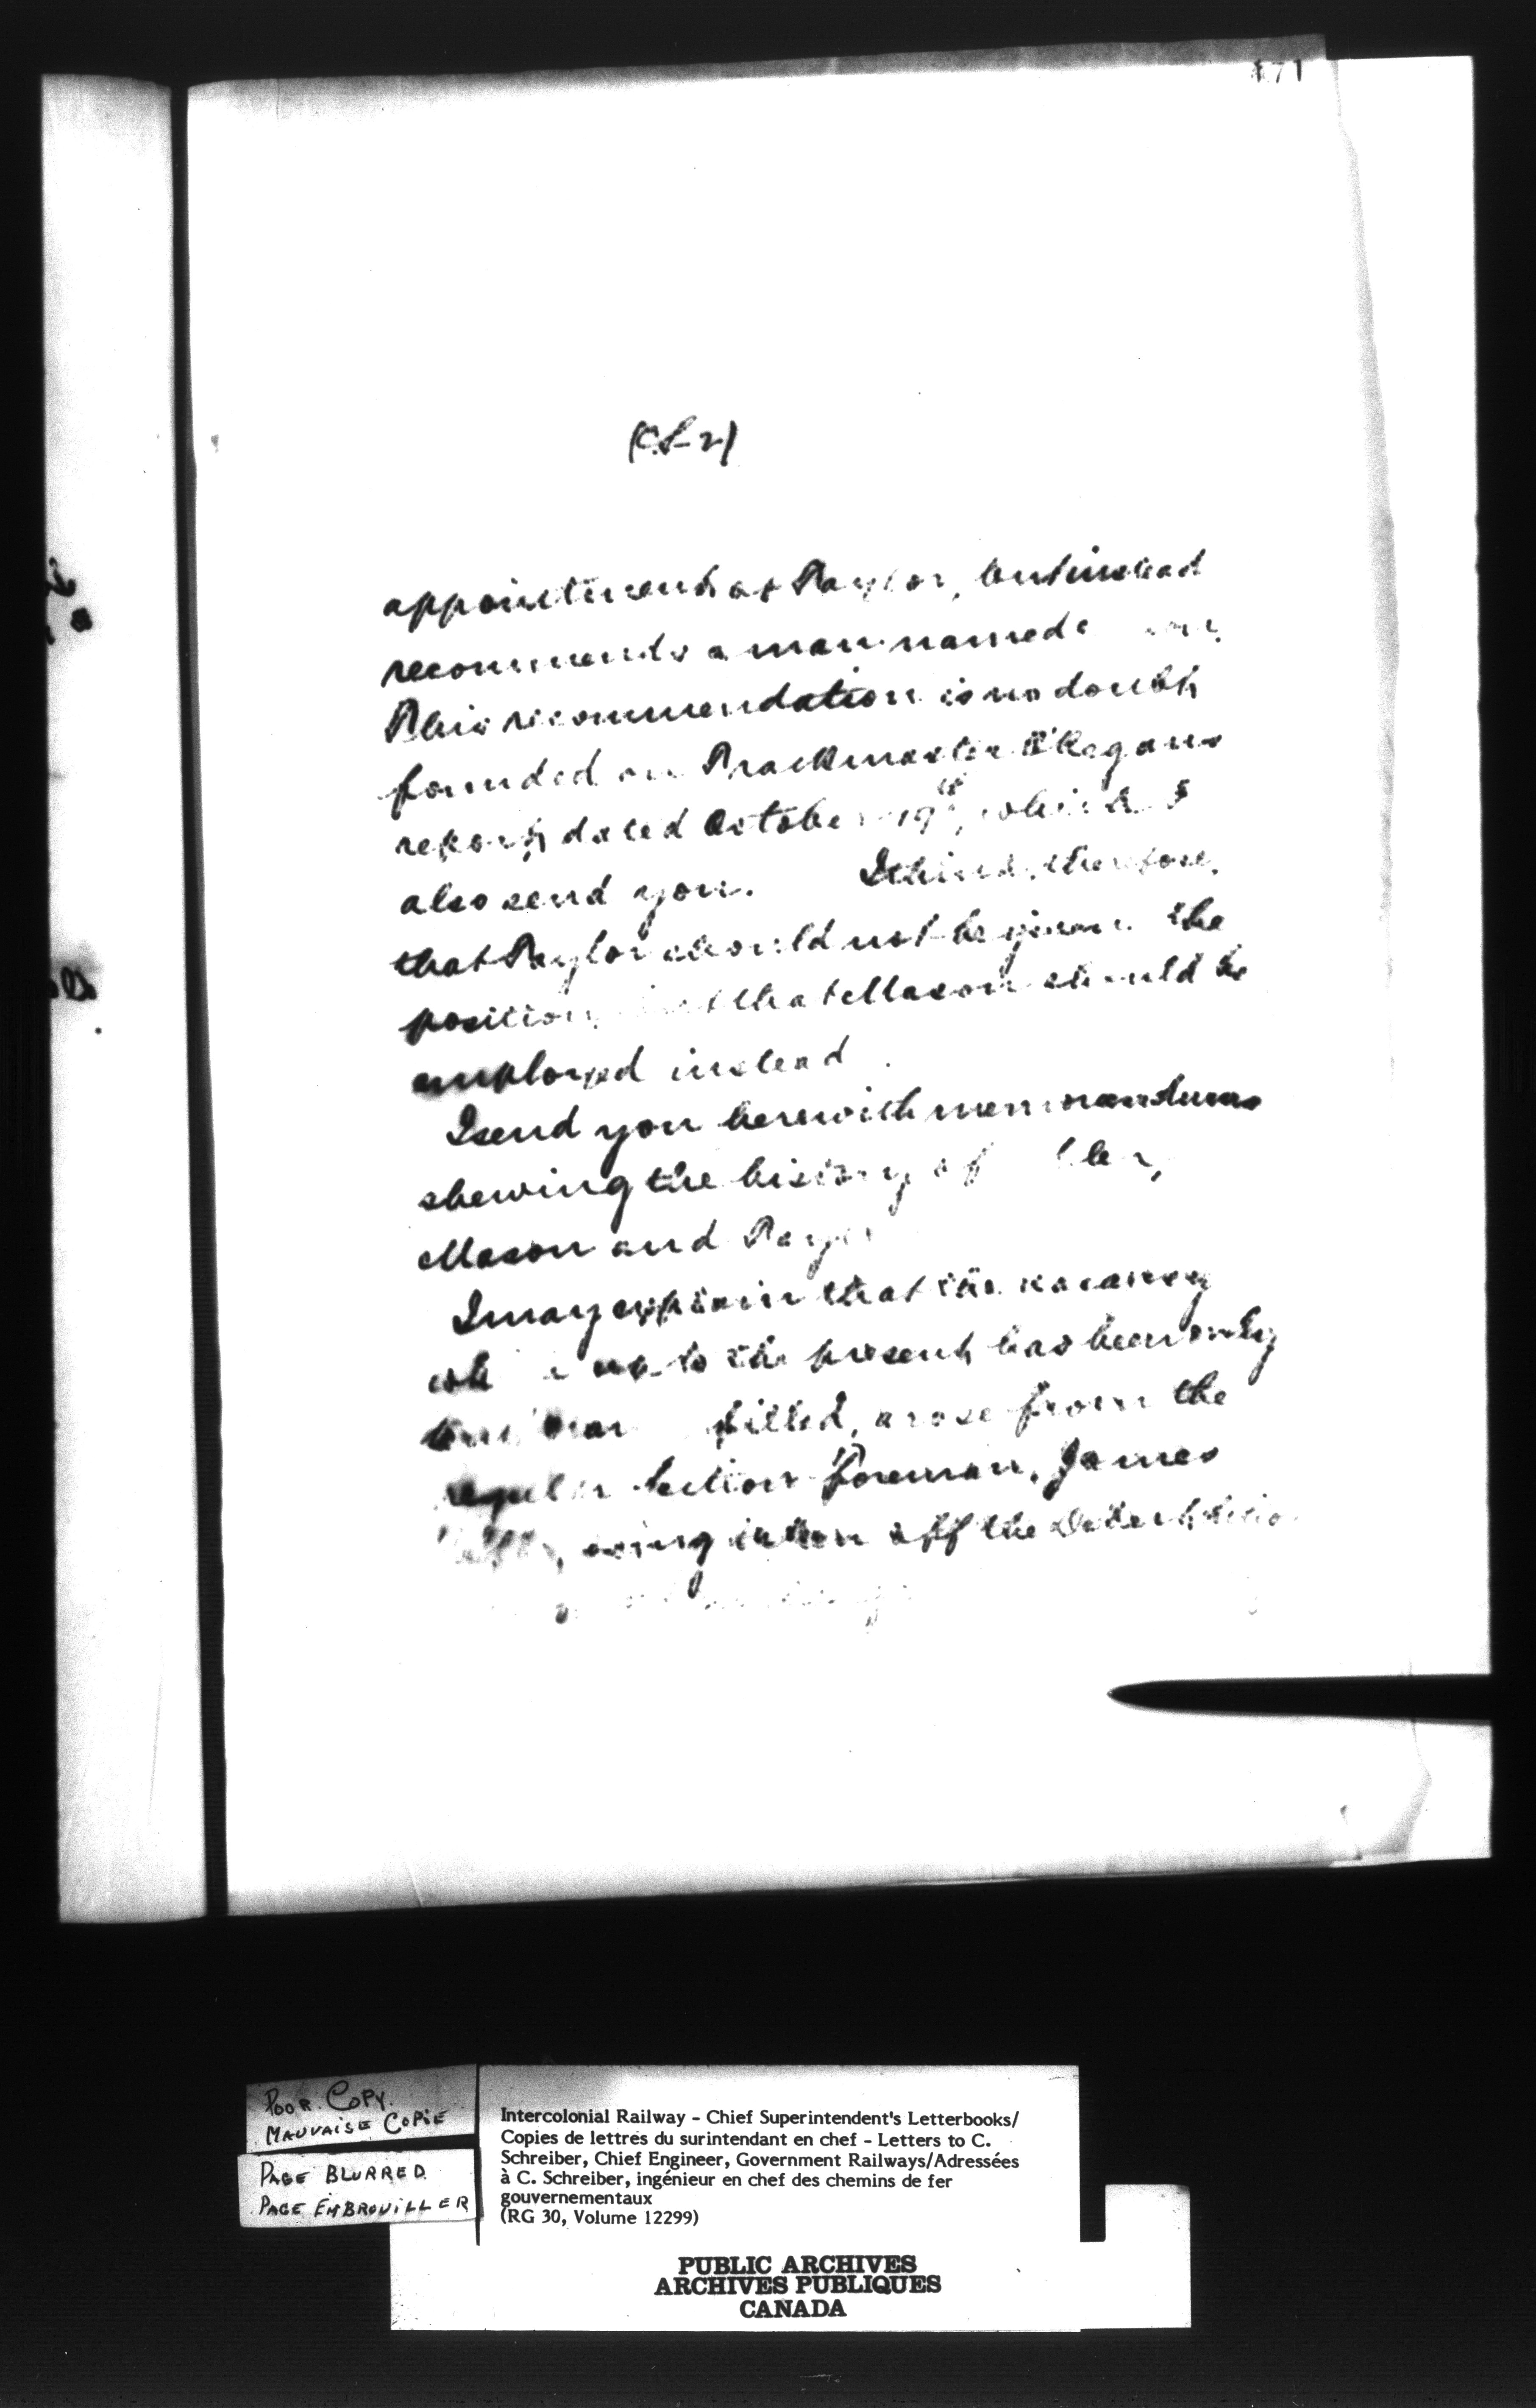 71
(C.S-2)
appointment of Taylor, but instead
recommends a man named
This recommendation is no doubt
founded on Trackmaster O'Regans
report dated October 19th, which I
also send you. I think, therefore,
that Taylor should not be given the
position, but that Mason should be
employed instead.
I send you herewith memorandums
shewing the history of
Mason and
I may explain that the vacancy
up to the present has been only
filled, arose from the
regular Section Foreman, James
off the
POOR COPY.
MAUVAISE COPIE
PAGE BLURRED.
PAGE EMBROUILLER
Intercolonial Railway - Chief Superintendent's Letterbooks/
Copies de lettres du surintendant en chef - Letters to C.
Schreiber, Chief Engineer, Government Railways/Adressées
à C. Schreiber, ingénieur en chef des chemins de fer
gouvernementaux
(RG 30, Volume 12299)
PUBLIC ARCHIVES
ARCHIVES PUBLIQUES
CANADA